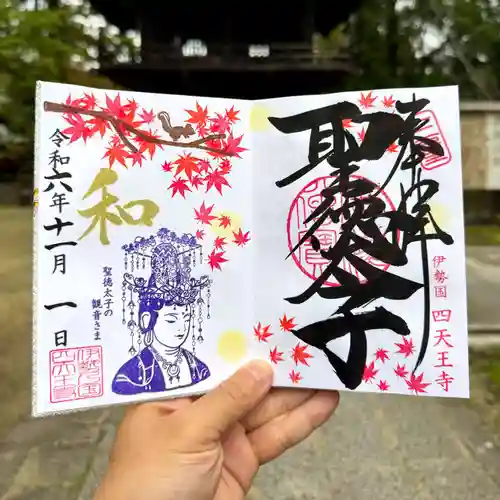 奉拝
聖徳太子
伊勢国 四天王寺
令和六年十一月 一日
和
聖徳太子の
観音さま